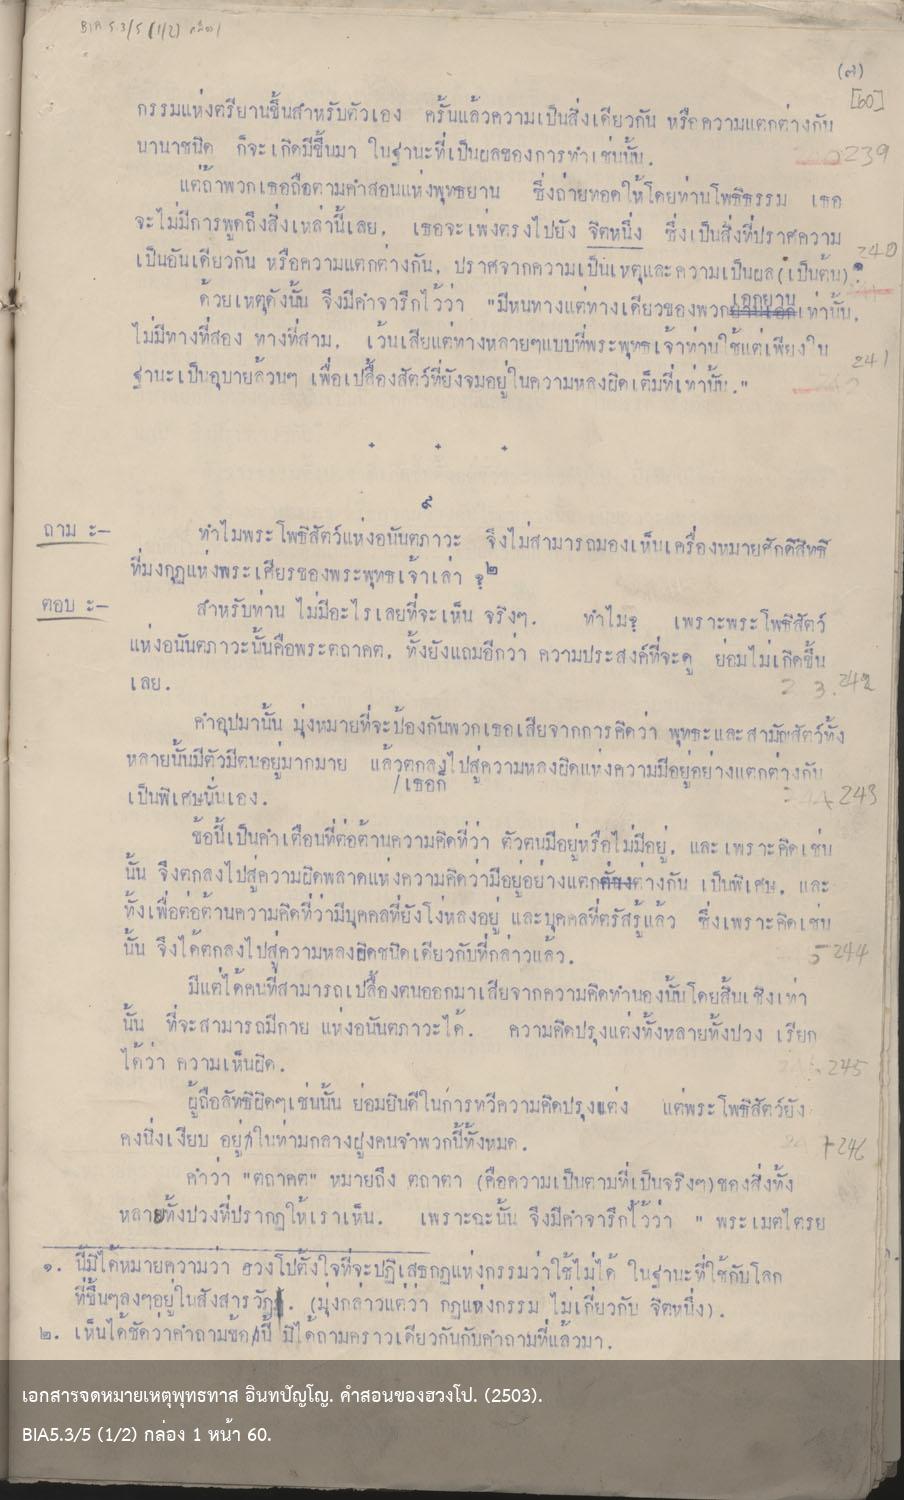 BIA 5.3/5 (1/2) กล่อง 1
(๗)
[60]
กรรมแห่งตรียานขึ้นสำหรับตัวเอง ครั้นแล้วความเป็นสิ่งเดียวกัน หรือความแตกต่างกัน
นานาชนิด ก็จะเกิดมีขึ้นมา ในฐานะที่เป็นผลของการทำเช่นนั้น.
239
แต่ถ้าพวกเธอถือตามคำสอนแห่งพุทธยาน ซึ่งถ่ายทอดให้โดยท่านโพธิธรรม เธอ
จะไม่มีการพูดถึงสิ่งเหล่านี้เลย, เธอจะเพ่งตรงไปยัง จิตหนึ่ง ซึ่งเป็นสิ่งที่ปราศความ
เป็นอันเดียวกัน หรือความแตกต่างกัน, ปราศจากความเป็นเหตุและความเป็นผล(เป็นต้น)๑
240
ด้วยเหตุดังนั้น จึงมีคำจารึกไว้ว่า "มีหนทางแต่ทางเดียวของพวกเอกยานเท่านั้น,
ไม่มีทางที่สอง ทางที่สาม, เว้นเสียแต่ทางหลายๆแบบที่พระพุทธเจ้าท่านใช้แต่เพียงใน
ฐานะเป็นอุบายล้วนๆ เพื่อเปลื้องสัตว์ที่ยังจมอยู่ในความหลงผิดเต็มที่เท่านั้น."
241
๙
ถาม ะ— ทำไมพระโพธิสัตว์แห่งอนันตภาวะ จึงไม่สามารถมองเห็นเครื่องหมายศักดิ์สิทธิ์
ที่มงกุฎแห่งพระเศียรของพระพุทธเจ้าเล่า ?๒
ตอบ ะ— สำหรับท่าน ไม่มีอะไรเลยที่จะเห็น จริงๆ. ทำไม? เพราะพระโพธิสัตว์
แห่งอนันตภาวะนั้นคือพระตถาคต, ทั้งยังแถมอีกว่า ความประสงค์ที่จะดู ย่อมไม่เกิดขึ้น
เลย.
242
คำอุปมานั้น มุ่งหมายที่จะป้องกันพวกเธอเสียจากการคิดว่า พุทธะและสามัญสัตว์ทั้ง
หลายนั้นมีตัวมีตนอยู่มากมาย แล้วตกลงไปสู่ความหลงผิดแห่งความมีอยู่อย่างแตกต่างกัน
/เธอก็
เป็นพิเศษนั่นเอง.
243
ข้อนี้เป็นคำเตือนที่ต่อต้านความคิดที่ว่า ตัวตนมีอยู่หรือไม่มีอยู่, และเพราะคิดเช่น
นั้น จึงตกลงไปสู่ความผิดพลาดแห่งความคิดว่ามีอยู่อย่างแตกต่างกัน เป็นพิเศษ, และ
ทั้งเพื่อต่อต้านความคิดที่ว่ามีบุคคลที่ยังโง่หลงอยู่ และบุคคลที่ตรัสรู้แล้ว ซึ่งเพราะคิดเช่น
นั้น จึงได้ตกลงไปสู่ความหลงผิดชนิดเดียวกับที่กล่าวแล้ว.
244
มีแต่ได้คนที่สามารถเปลื้องตนออกมาเสียจากความคิดทำนองนั้นโดยสิ้นเชิงเท่า
นั้น ที่จะสามารถมีกาย แห่งอนันตภาวะได้. ความคิดปรุงแต่งทั้งหลายทั้งปวง เรียก
ได้ว่า ความเห็นผิด.
245
ผู้ถือลัทธิผิดๆเช่นนั้น ย่อมยินดีในการทวีความคิดปรุงแต่ง แต่พระโพธิสัตว์ยัง
คงนิ่งเงียบ อยู่ในท่ามกลางฝูงคนจำพวกนี้ทั้งหมด.
246
คำว่า "ตถาคต" หมายถึง ตถาตา (คือความเป็นตามที่เป็นจริงๆ)ของสิ่งทั้ง
หลายทั้งปวงที่ปรากฏให้เราเห็น. เพราะฉะนั้น จึงมีคำจารึกไว้ว่า " พระเมตไตรย
๑. นี้มิได้หมายความว่า ฮวงโปตั้งใจที่จะปฏิเสธกฎแห่งกรรมว่าใช้ไม่ได้ ในฐานะที่ใช้กับโลก
ที่ขึ้นๆลงๆอยู่ในสังสารวัฏ. (มุ่งกล่าวแต่ว่า กฎแห่งกรรม ไม่เกี่ยวกับ จิตหนึ่ง).
๒. เห็นได้ชัดว่าคำถามข้อนี้ มิได้ถามคราวเดียวกันกับคำถามที่แล้วมา.
เอกสารจดหมายเหตุพุทธทาส อินทปัญโญ. คำสอนของฮวงโป. (2503).
BIA5.3/5 (1/2) กล่อง 1 หน้า 60.